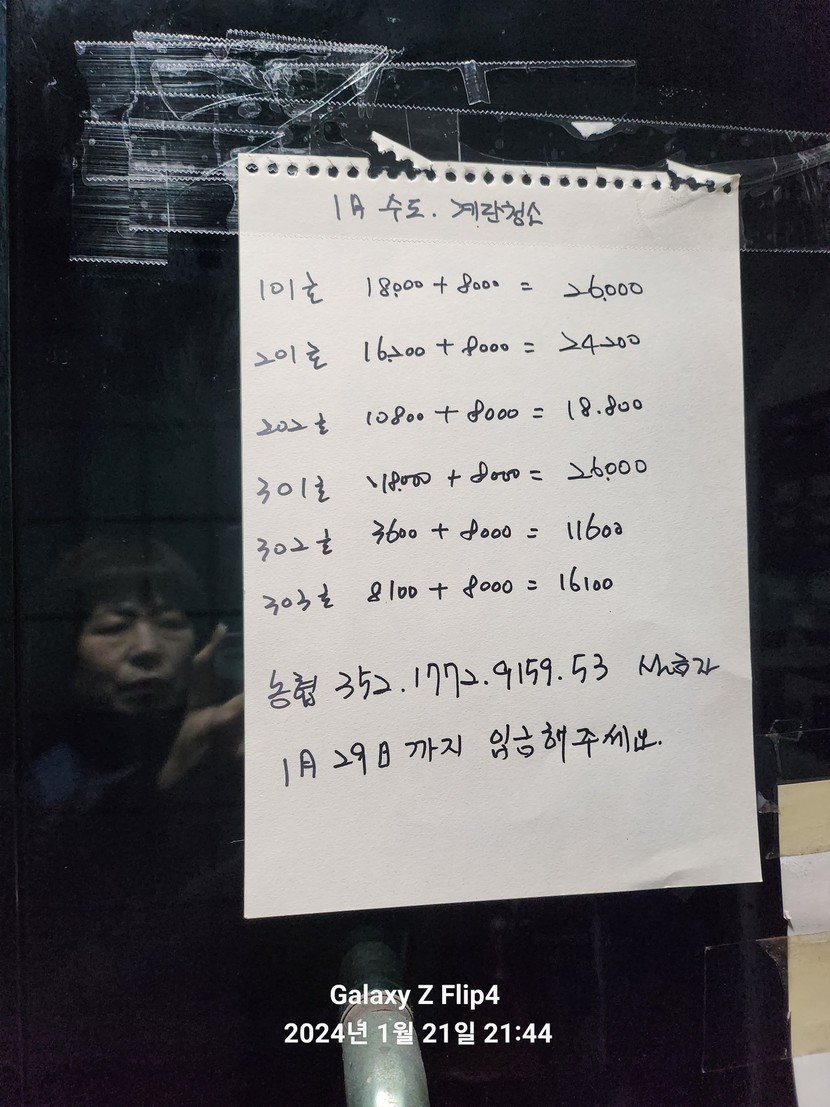 1月 수도. 계란청소
101호 18,000 + 8000 = 26,000
201호 16,200 + 8000 = 24200
202호 10800 + 8000 = 18.800
301호 18,000 + 8000 = 26,000
302호 3600 + 8000 = 11600
303호 8100 + 8000 = 16100
농협 352.1772.9159.53
1月 29日 까지 입금해주세요.
Galaxy Z Flip4
2024년 1월 21일 21:44